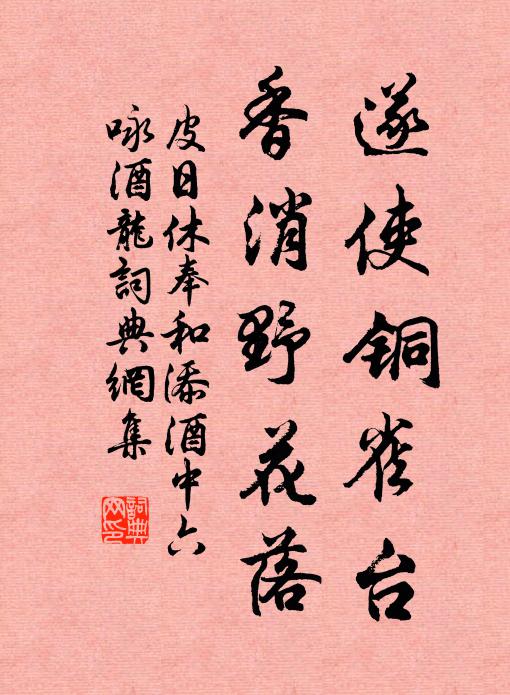 遂使銅雀台
香消野花落
皮日休奉和添酒中六
咏酒龍詞典網集
詞典
网印